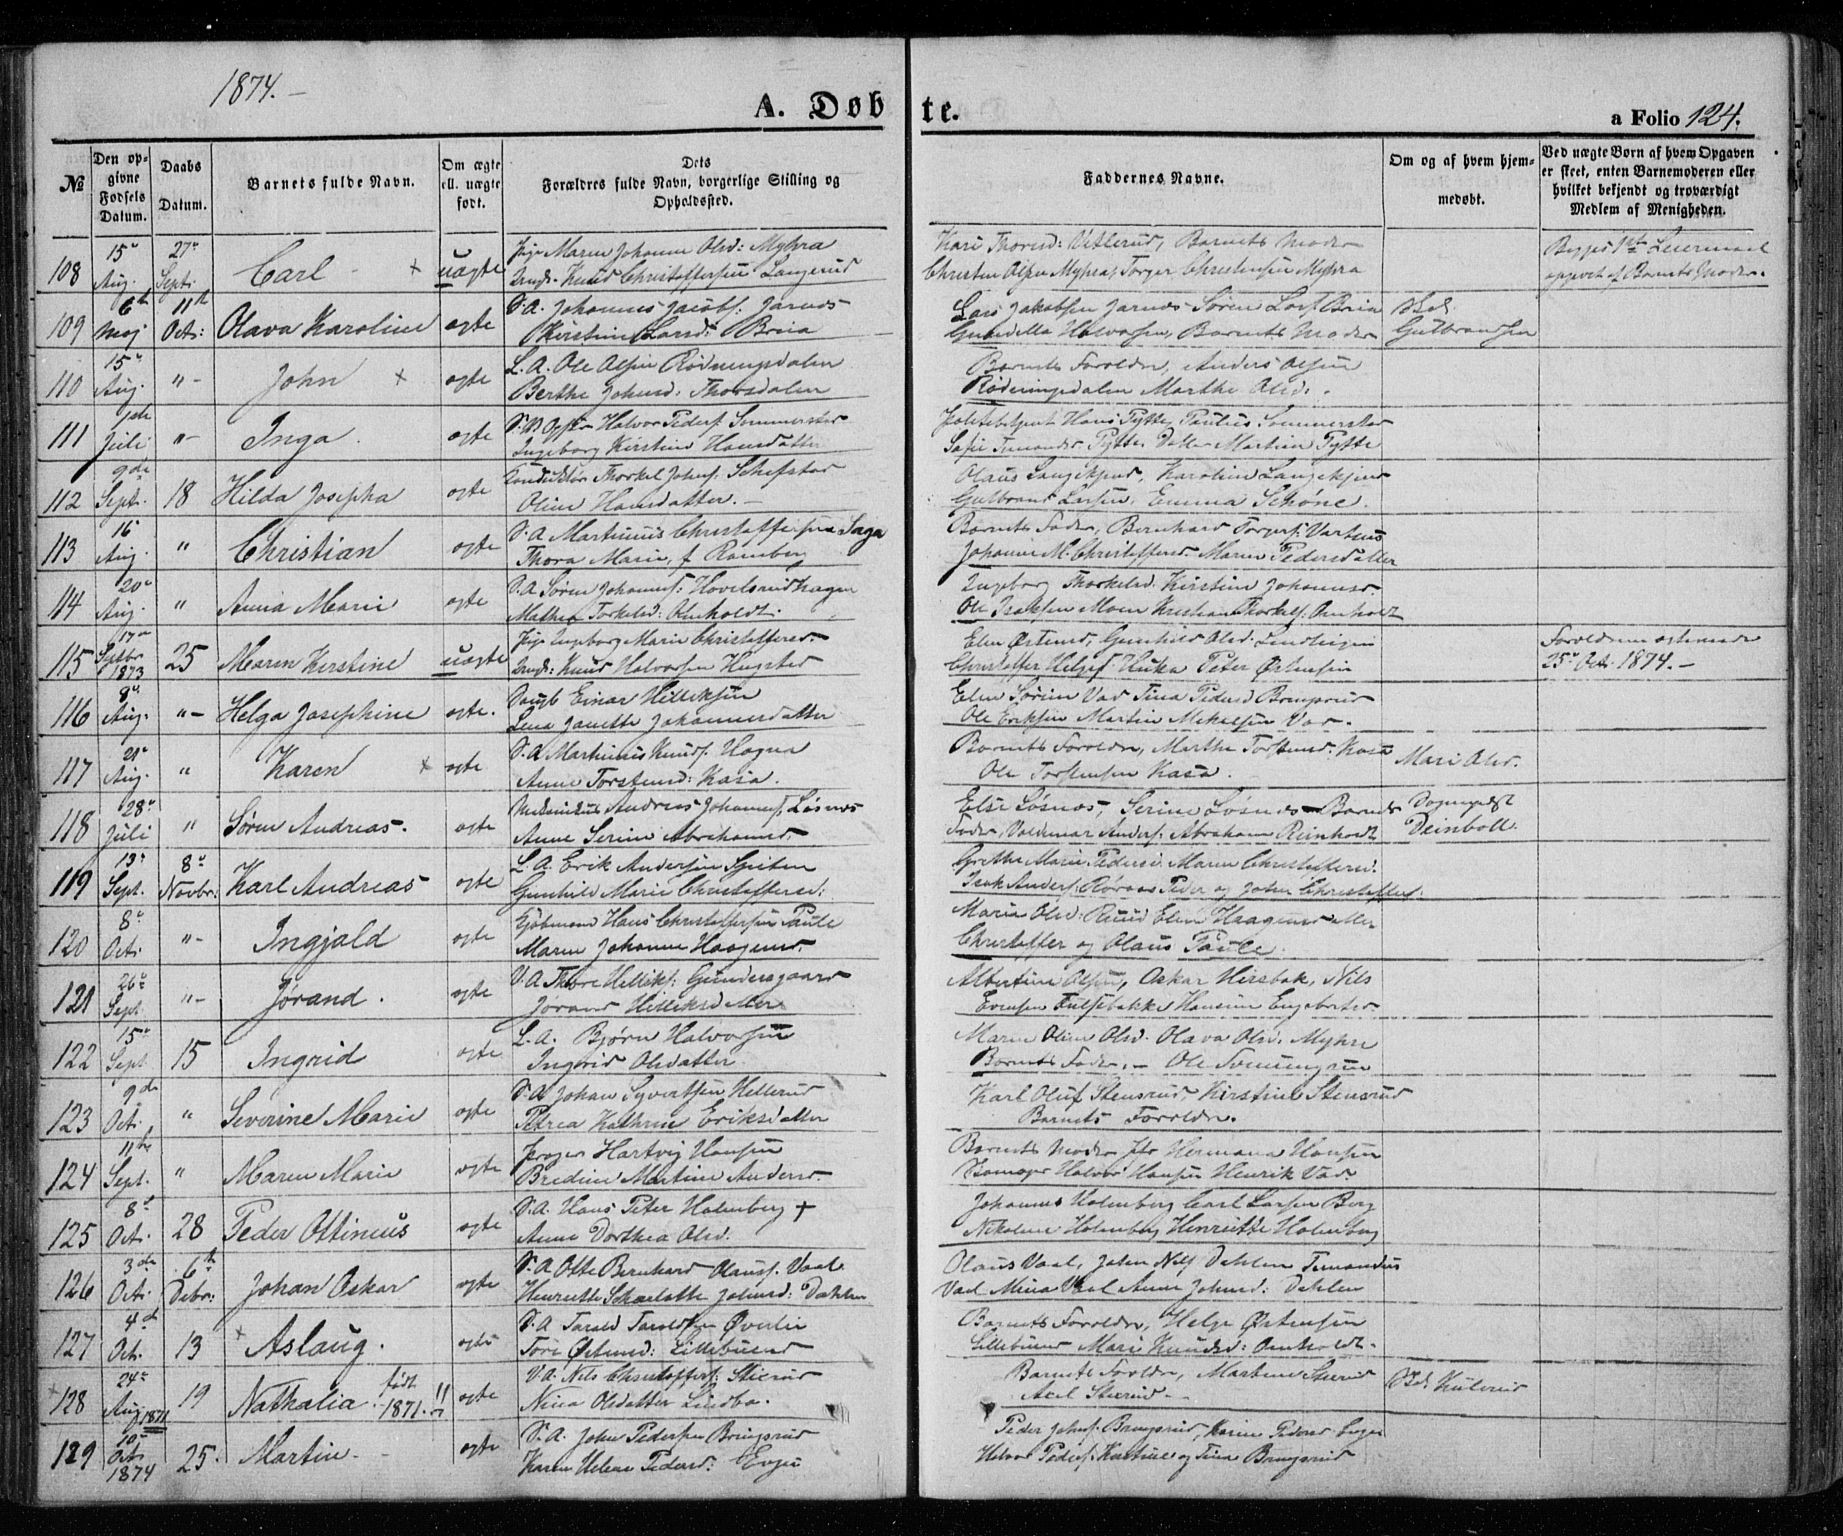 1874.-
A. Døbte.
a Folio 124.
№
Den opgivne Fødsels Datum.
Daabs Datum.
Barnets fulde Navn.
Om ægte ell. uægte født.
Dets Forældres fulde Navn, borgerlige Stilling og Opholdssted.
Faddernes Navne.
Om og af hvem hjemmedøbt.
Ved uægte Børn af hvem Opgaven er skeet, enten Barnemoderen eller hvilket bekjendt og troværdigt Medlem af Menigheden.
108 15 Aug. 27 Sept. Carl uægte
Pige Maren Johanne Olsd: Myhra
Ungk. Knud Christoffersen Langerud
Kari Thorsd: Vetlerud, Barnets Moder
Christen Olsen Myhra, Torger Christensen Myhra
Begges 1ste Leiermaal
opgivet af Barnets Moder.
109 6te Maj 11te Oct: Olava Karoline ægte
S.A. Johannes Jacobs. Jarnæs
Kirstine Larsd: Bria
Lars Jakobsen Jarnæs Søren Lars. Bria
Gunnilla Halvorsen, Barnets Moder
Gulbrandsen
110 15 Aug. "- John ægte
L.A. Ole Olsen Rødningsdalen
Berthe Johnsd: Thorsdalen
Barnets Forældre, Anders Olsen
Rødningsdalen Marthe Olsd:
111 1ste Juli "- Inga. ægte
Halvor Peders. Sommerstad
Ingeborg Kirstine Hansdatter
Politibetjent Hans Tytte, Paulus Sommerstad
112 9de Sept. 18 Hilda Josepha ægte
Konduktør Thorkel Johns. Schefstad
Oline Hansdatter.-
Olaus Langekjend, Karoline Langekjend
Gulbrand Larsen, Emma Schøne.
113 16 Aug. " Christian ægte
S.A. Martinius Christoffersen Saga
Thora Marie, f Ramberg
Barnets Fader, Bernhard Torgers. Vartnes
Johanne M. Christoffersd. Maren Pedersdatter
114 20 Aug. " Anna Marie ægte
S.A. Søren Johannes. Hovelsrudhagen
Mathea Torkelsd: Omholdt.
Ingeborg Thorkelsd. Kirstine Johannesd.
Ole Isaksen Moen Kristian Thorkels: Omholdt
115 17 Septbr 1873 25 Maren Kirstine uægte
Pige Ingeborg Marie Christoffersd.
Ungk: Knud Halvorsen Hugstad
Elen Østensd, Gunhild Olsd:
Christoffer Helges. Peter Østensen
Forældrene ægteviede
25de Oct. 1874.-
116 8 Aug. "- Helga Josephine ægte.
Einar Helliksen
Lena Janette Johannesdatter
Elen Sørine Vad Tina Pedersd Bringsrud
Ole Eriksen Martin Mikelsen Vad.
117 21 Aug. " Karen ægte
S.A. Martinius Knuds. Hagna
Anne Torstensd: Kasa.
Barnets Forældre, Marthe Torstensd. Kasa
Ole Torstensen Kasa.
Mari Olsd.
118 28 Juli " Søren Andreas. ægte
Andreas Johannes. Løsnæs
Anne Serine Abrahamsd.
Else Løsnæs, Serine Løsnæs Barnets
Fader, Valdemar Anders. Abraham Reinholdt
Sogneprest
Deinboll.
119 13 Sept. 8 Novbr: Karl Andreas ægte
L.A. Erik Andersen
Gunhild Marie Christoffersd:
Grethe Marie Pedersd: Maren Christoffersd.
Isak Anders. Røraas Peder og John Christoffers.
120 8 Oct. "- Ingjald ægte
Kjøbmand Hans Christoffersen Paule
Maren Johanne Haagensd.
Maria Olsd: Ruud Elen Haagensdatter
Christoffer og Olaus Paule.
121 26 Sept. "- Jørand. ægte
S.A. Thore Helliks. Gundersgaard
Jorand Helliksdatter
Albertine Olsen, Oskar Heisbak, Nils
Evensen Hansine Engebretsd
122 15 Sept 15 Ingrid ægte
L.A. Bjørn Halvorsen
Ingrid Olsdatter
Maren Oline Olsd. Olava Olsd. Myhre
Barnets Fader.- Ole
123 9de Oct. " Severine Marie ægte
S.A. Johan Syvertsen Hellerud
Petrea Kathrine Eriksdatter
Karl Oluf Stensrud, Kirstine Stensrud
Barnets Forældre.
124 11te Sept. " Maren Marie ægte
Hartvig Hansen
Bredine Martine Andersd.
Barnets Moder, Hermana Hansen
Halvor Hansen Henrik Vad.
125 8 Oct. 28 Peder Ottinius ægte
S.A. Hans Peter Holmberg +
Anne Dorthea Olsd.
Johannes Holmberg Carl Larsen Berg
Nikoline Holmberg Henriette Holmberg
126 3die Oct. 6te Debr: Johan Oskar ægte
S.A. Otte Bernhard Olaus. Vaal
Henriette Scharlotte Johnsd: Dahlen
Olaus Vaal, John Nils. Dahlen
Vad Mina Vaal Anne Johnsd: Dahlen
127 4de Oct. 13 Aslaug. ægte
S.A. Tarald Taraldsen Øverlie
Tore Østensd: Lillebuend
Barnets Forældre, Helge Østensen
Lillebuend Mari Knudsd: Omholdt.
128 24 Aug. 1871 19 Nathalia. født 1871.!! ægte
S.A. Nils Christoffers. Stierud
Nina Olsdatter Lindbo.
Barnets Forældre, Stierud
Axel Stierud.-
129 10 Oct. 1874 25. Martin.- ægte
S.A. John Pedersen Bringsrud
Karen Helene Pedersd: Enger
Peder Johns. Bringsrud, Karine Pedersd. Enger
Halvor Peders. Kirstine og Tina Bringsrud